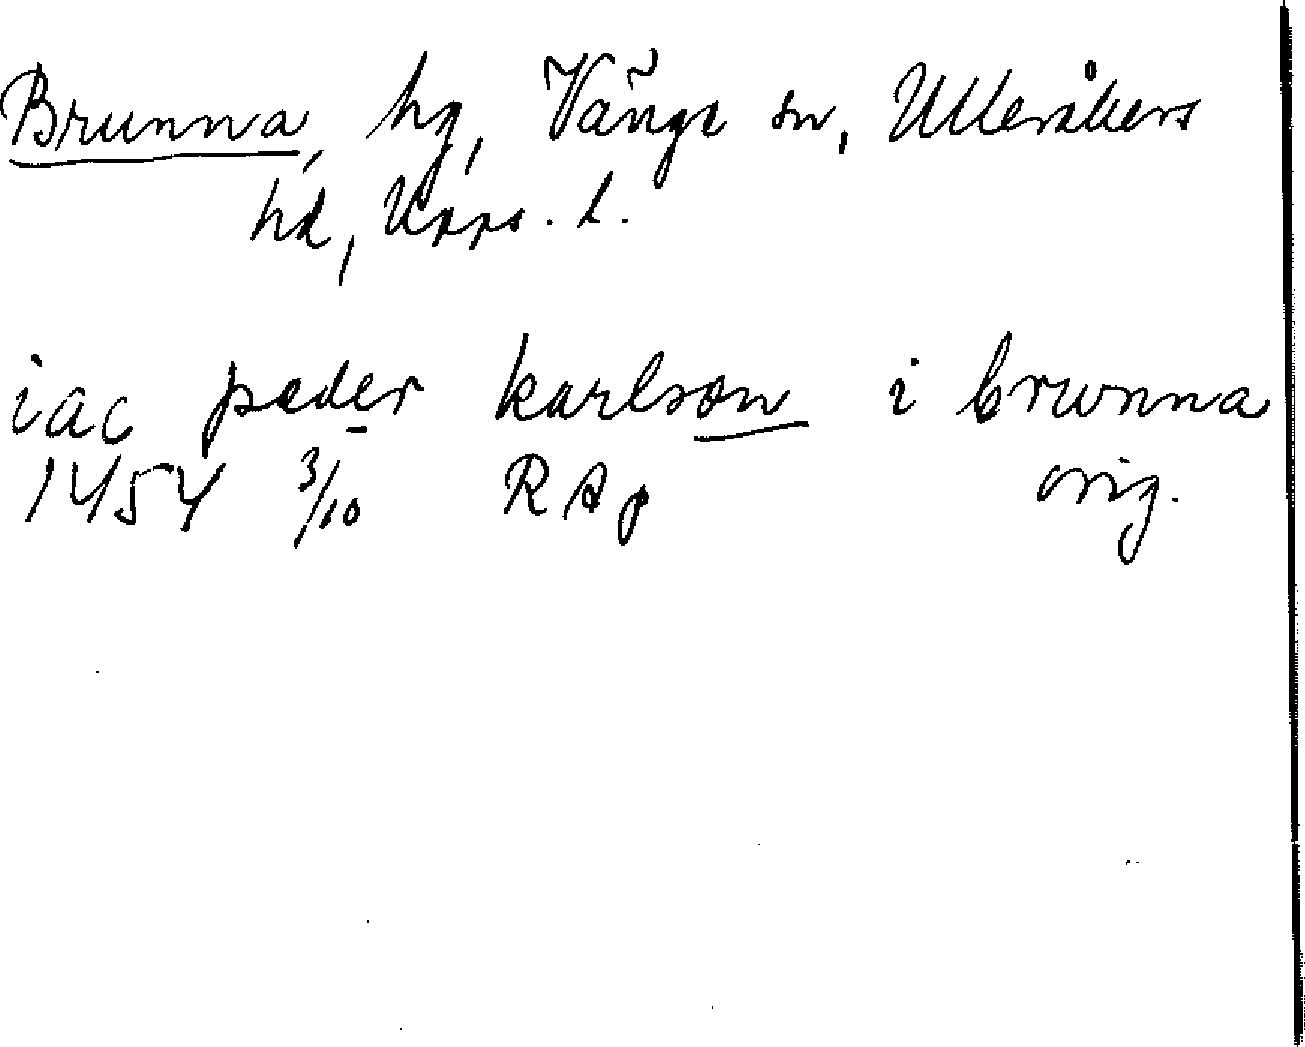 Brunna, hg, Vänge sn, Ulleråkers
hd, Upps. l.
iac peder karlson i brunna
1454 3/10 RAp orig.